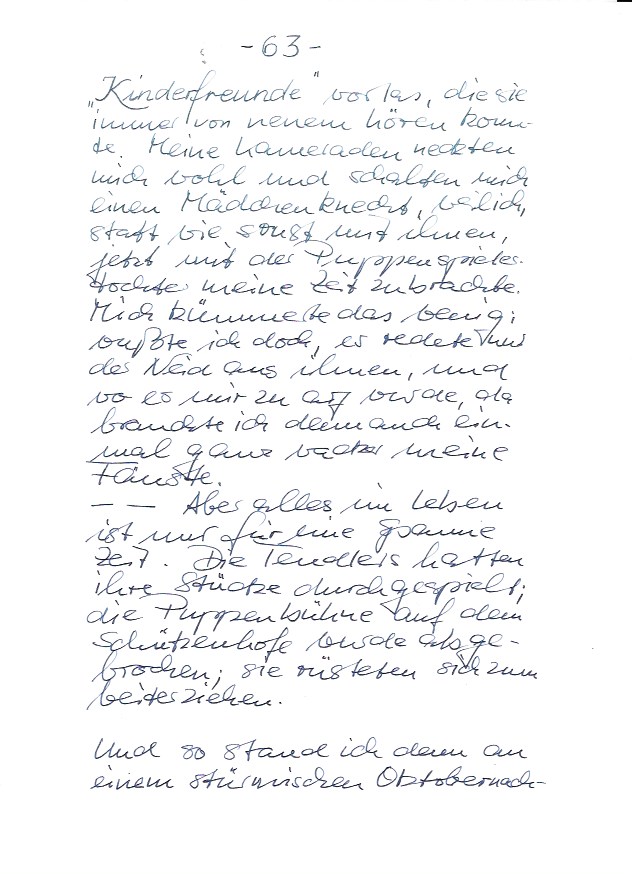 -63-
„Kinderfreunde" vorlas, die sie
immer von neuem hören konn-
te. Meine Kameraden neckten
mich wohl und schalten mich
einen Mädchenknecht, weil ich,
statt wie sonst mit ihnen,
jetzt mit der Puppenspieler-
tochter meine Zeit zubrachte.
Mich kümmerte das wenig;
wußte ich doch, es redete nur
der Neid aus ihnen, und
wo es mir zu arg wurde, da
brauchte ich denn auch ein-
mal ganz wacker meine
Fäuste.
— — Aber alles im Leben
ist nur für eine Spanne
Zeit. Die Tendlers hatten
ihre Stücke durchgespielt;
die Puppenbühne auf dem
Schützenhofe wurde abge-
brochen; sie rüsteten sich zum
Weiterziehen.
Und so stand ich denn an
einem stürmischen Oktobernach-